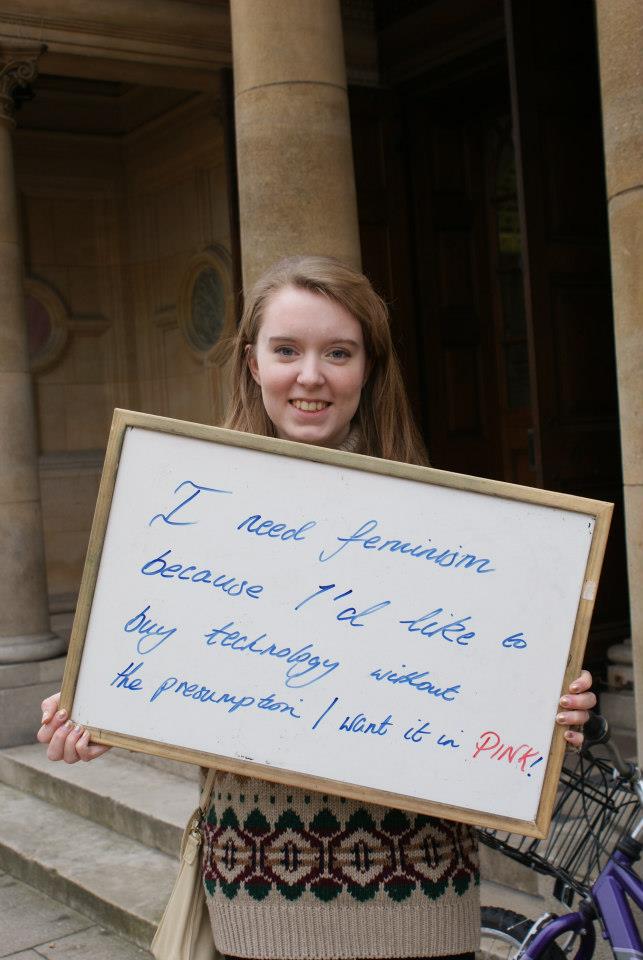 I need feminism
because I'd like to
buy technology without
the presumption I want it in PINK!